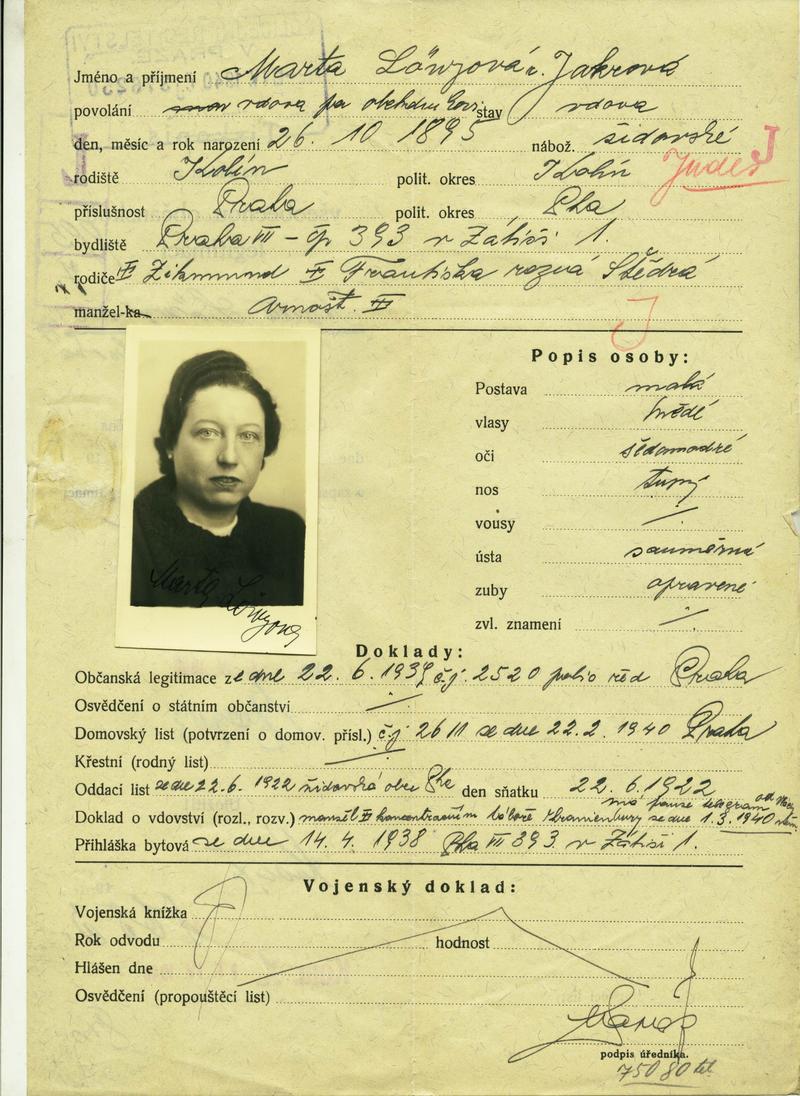 Jméno a příjmení Marta Löwyová r. Jahrová
povolání vdova po obchdn stav vdova
den, měsíc a rok narození 26. 10 1895 nábož. židovské J
rodiště Kolín polit. okres Kolín Judes
příslušnost Praha polit. okres Pha
bydliště Praha III – čp 393 v Zátiší 1.
rodiče Zikmund Františka rozvá Štědrá
manžel-ka Arnošt
J
Popis osoby:
Postava malá
vlasy hnědé
oči šedomodré
nos tupý
vousy /
ústa souměrná
zuby opravené
zvl. znamení /
Marta
Doklady:
Občanská legitimace ze dne 22. 6. 1939 čj. 2520 polic řed Praha
Osvědčení o státním občanství /
Domovský list (potvrzení o domov. přísl.) čj 2611 ze dne 22. 2. 1940 Praha
Křestní (rodný list)
Oddací list ze dne 22. 6. 1922 židovská obec Pha den sňatku 22. 6. 1922
má pouze telegram
Doklad o vdovství (rozl., rozv.) manžel koncentračním táboře ze dne 1. 3. 1940
Přihláška bytová ze dne 14. 4. 1938 Pha III 393 v Zátiší 1.
Vojenský doklad:
Vojenská knížka
Rok odvodu hodnost
Hlášen dne
Osvědčení (propouštěcí list)
podpis úředníka.
75080